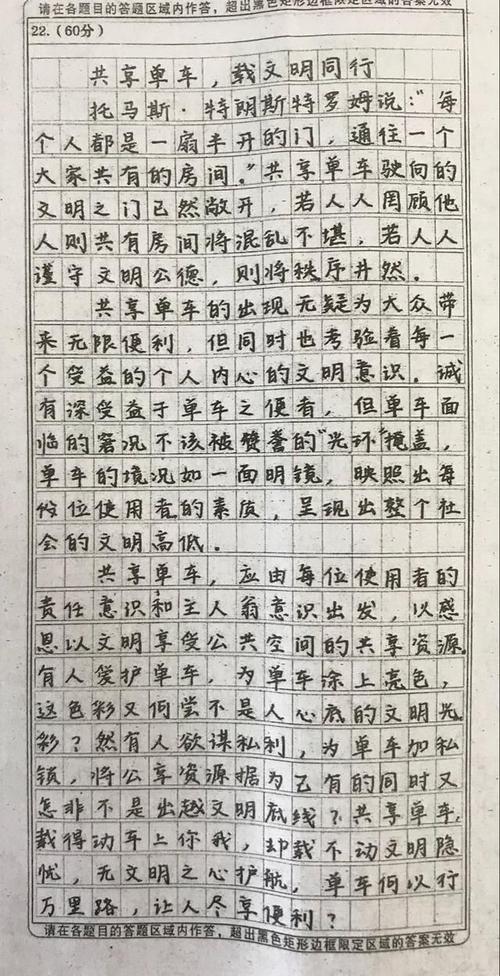 请在各题目的答题区域内作答，超出黑色矩形边框限定区域的答案无效
22.（60分）
共享单车，载文明同行
托马斯·特朗斯特罗姆说："每
个人都是一扇半开的门，通往一个
大家共有的房间。"共享单车驶向的
文明之门已然敞开，若人人罔顾他
人则共有房间将混乱不堪，若人人
谨守文明公德，则将秩序井然。
共享单车的出现无疑为大众带
来无限便利，但同时也考验着每一
个受益的个人内心的文明意识。诚
有深受益于单车之便者，但单车面
临的窘况不该被赞誉的"光环"掩盖，
单车的境况如一面明镜，映照出每
位使用者的素质，呈现出整个社
会的文明高低。
共享单车，应由每位使用者的
责任意识和主人翁意识出发，以感
恩以文明享受公共空间的共享资源。
有人爱护单车，为单车涂上亮色，
这色彩又何尝不是人心底的文明光
彩？然有人欲谋私利，为单车加私
锁，将公享资源据为己有的同时又
怎非不是出越文明底线？共享单车，
载得动车上你我，却载不动文明隐
忧，无文明之心护航，单车何以行
万里路，让人尽享便利？
请在各题目的答题区域内作答，超出黑色矩形边框限定区域的答案无效